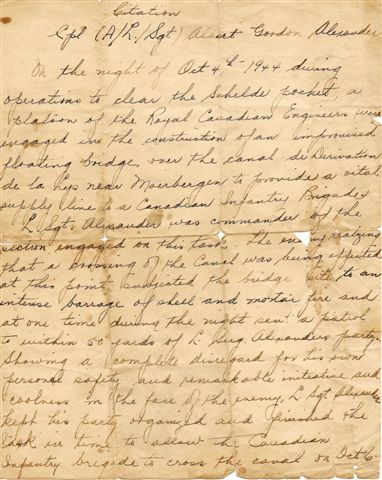 Citation
Cpl (A/L/Sgt) Albert Gordon Alexander
On the night of Oct 4th-1944 during
operations to clear the Schelde pocket a
platoon of the Royal Canadian Engineers were
engaged in the construction of an improvised
floating bridge, over the canal de Derivation
de la Lys near Moerbergen to provide a vital
supply line to a Canadian Infantry Brigade
L Sgt. Alexander was commander of the
section engaged on this task. The enemy realizing
that a crossing of the Canal was being effected
at this point subjected the bridge site to an
intense barrage of shell and mortar fire and
at one time during the night sent a patrol
to within 50 yards of L Sgt Alexanders party.
Showing a complete disregard for his own
personal safety and remarkable initative and
coolness in the face of the enemy, L Sgt Alexander
kept his party organized and finished the
task in time to allow the Canadian
Infantry brigade to cross the canal on Oct 6